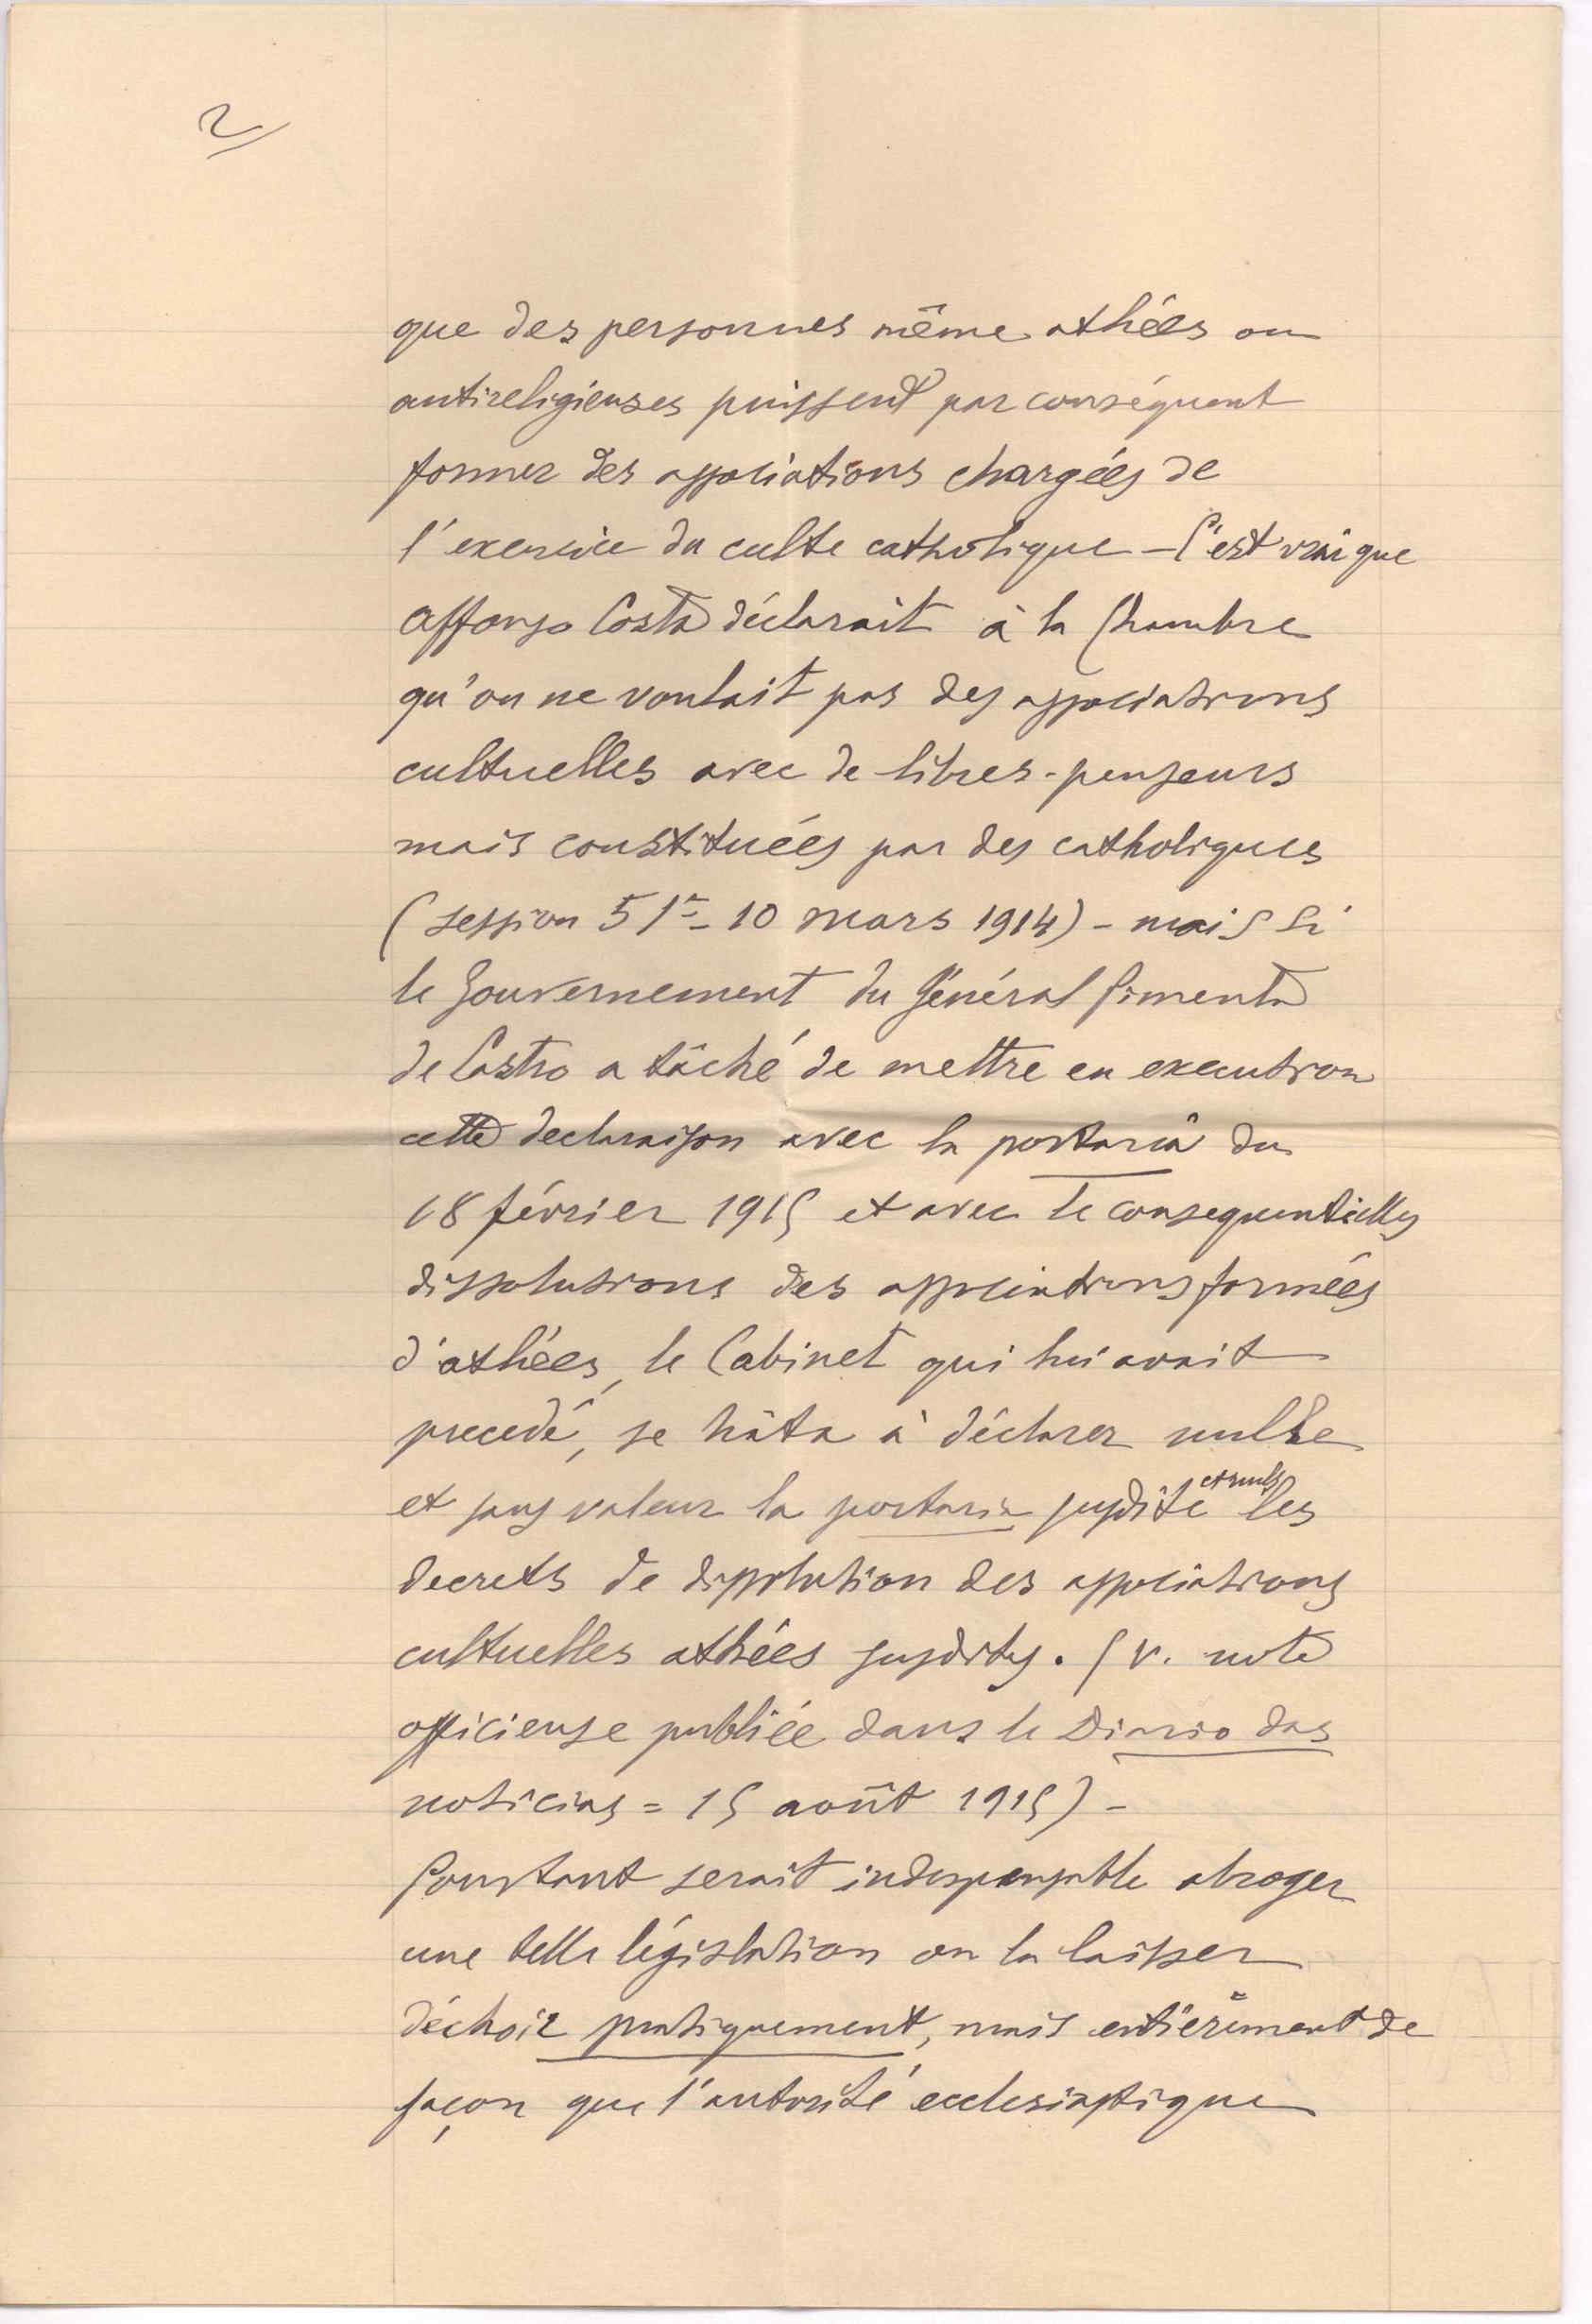 2
que des personnes même athées ou
antireligieuses puissent par conséquent
former des associations chargées de
l'exercice du culte catholique – C'est vrai que
Affonso Costa déclarait à la Chambre
qu'on ne voulait pas des associations
cultuelles avec de libres-penseurs
mais constituées par des catholiques
(session 51ª – 10 mars 1914) – mais si
le Gouvernement du Général Pimenta
de Castro a tâché de mettre en execution
cette declaraison avec la portaria du
18 février 1915 et avec le consequentielles
dissolutions des associations formées
d'athées, le Cabinet qui lui avait
precedé, se hâta à déclarer nulle
et sans valeur la portaria susdite et nuls les
decrets de dissolution des associations
cultuelles athées susdites. (V. note
officieuse publiée dans le Diario das
noticias = 15 août 1915) –
Pourtant serait indispensable abroger
une telle législation ou la laisser
déchoir pratiquement, mais entièrement de
façon que l'autorité ecclesiastique